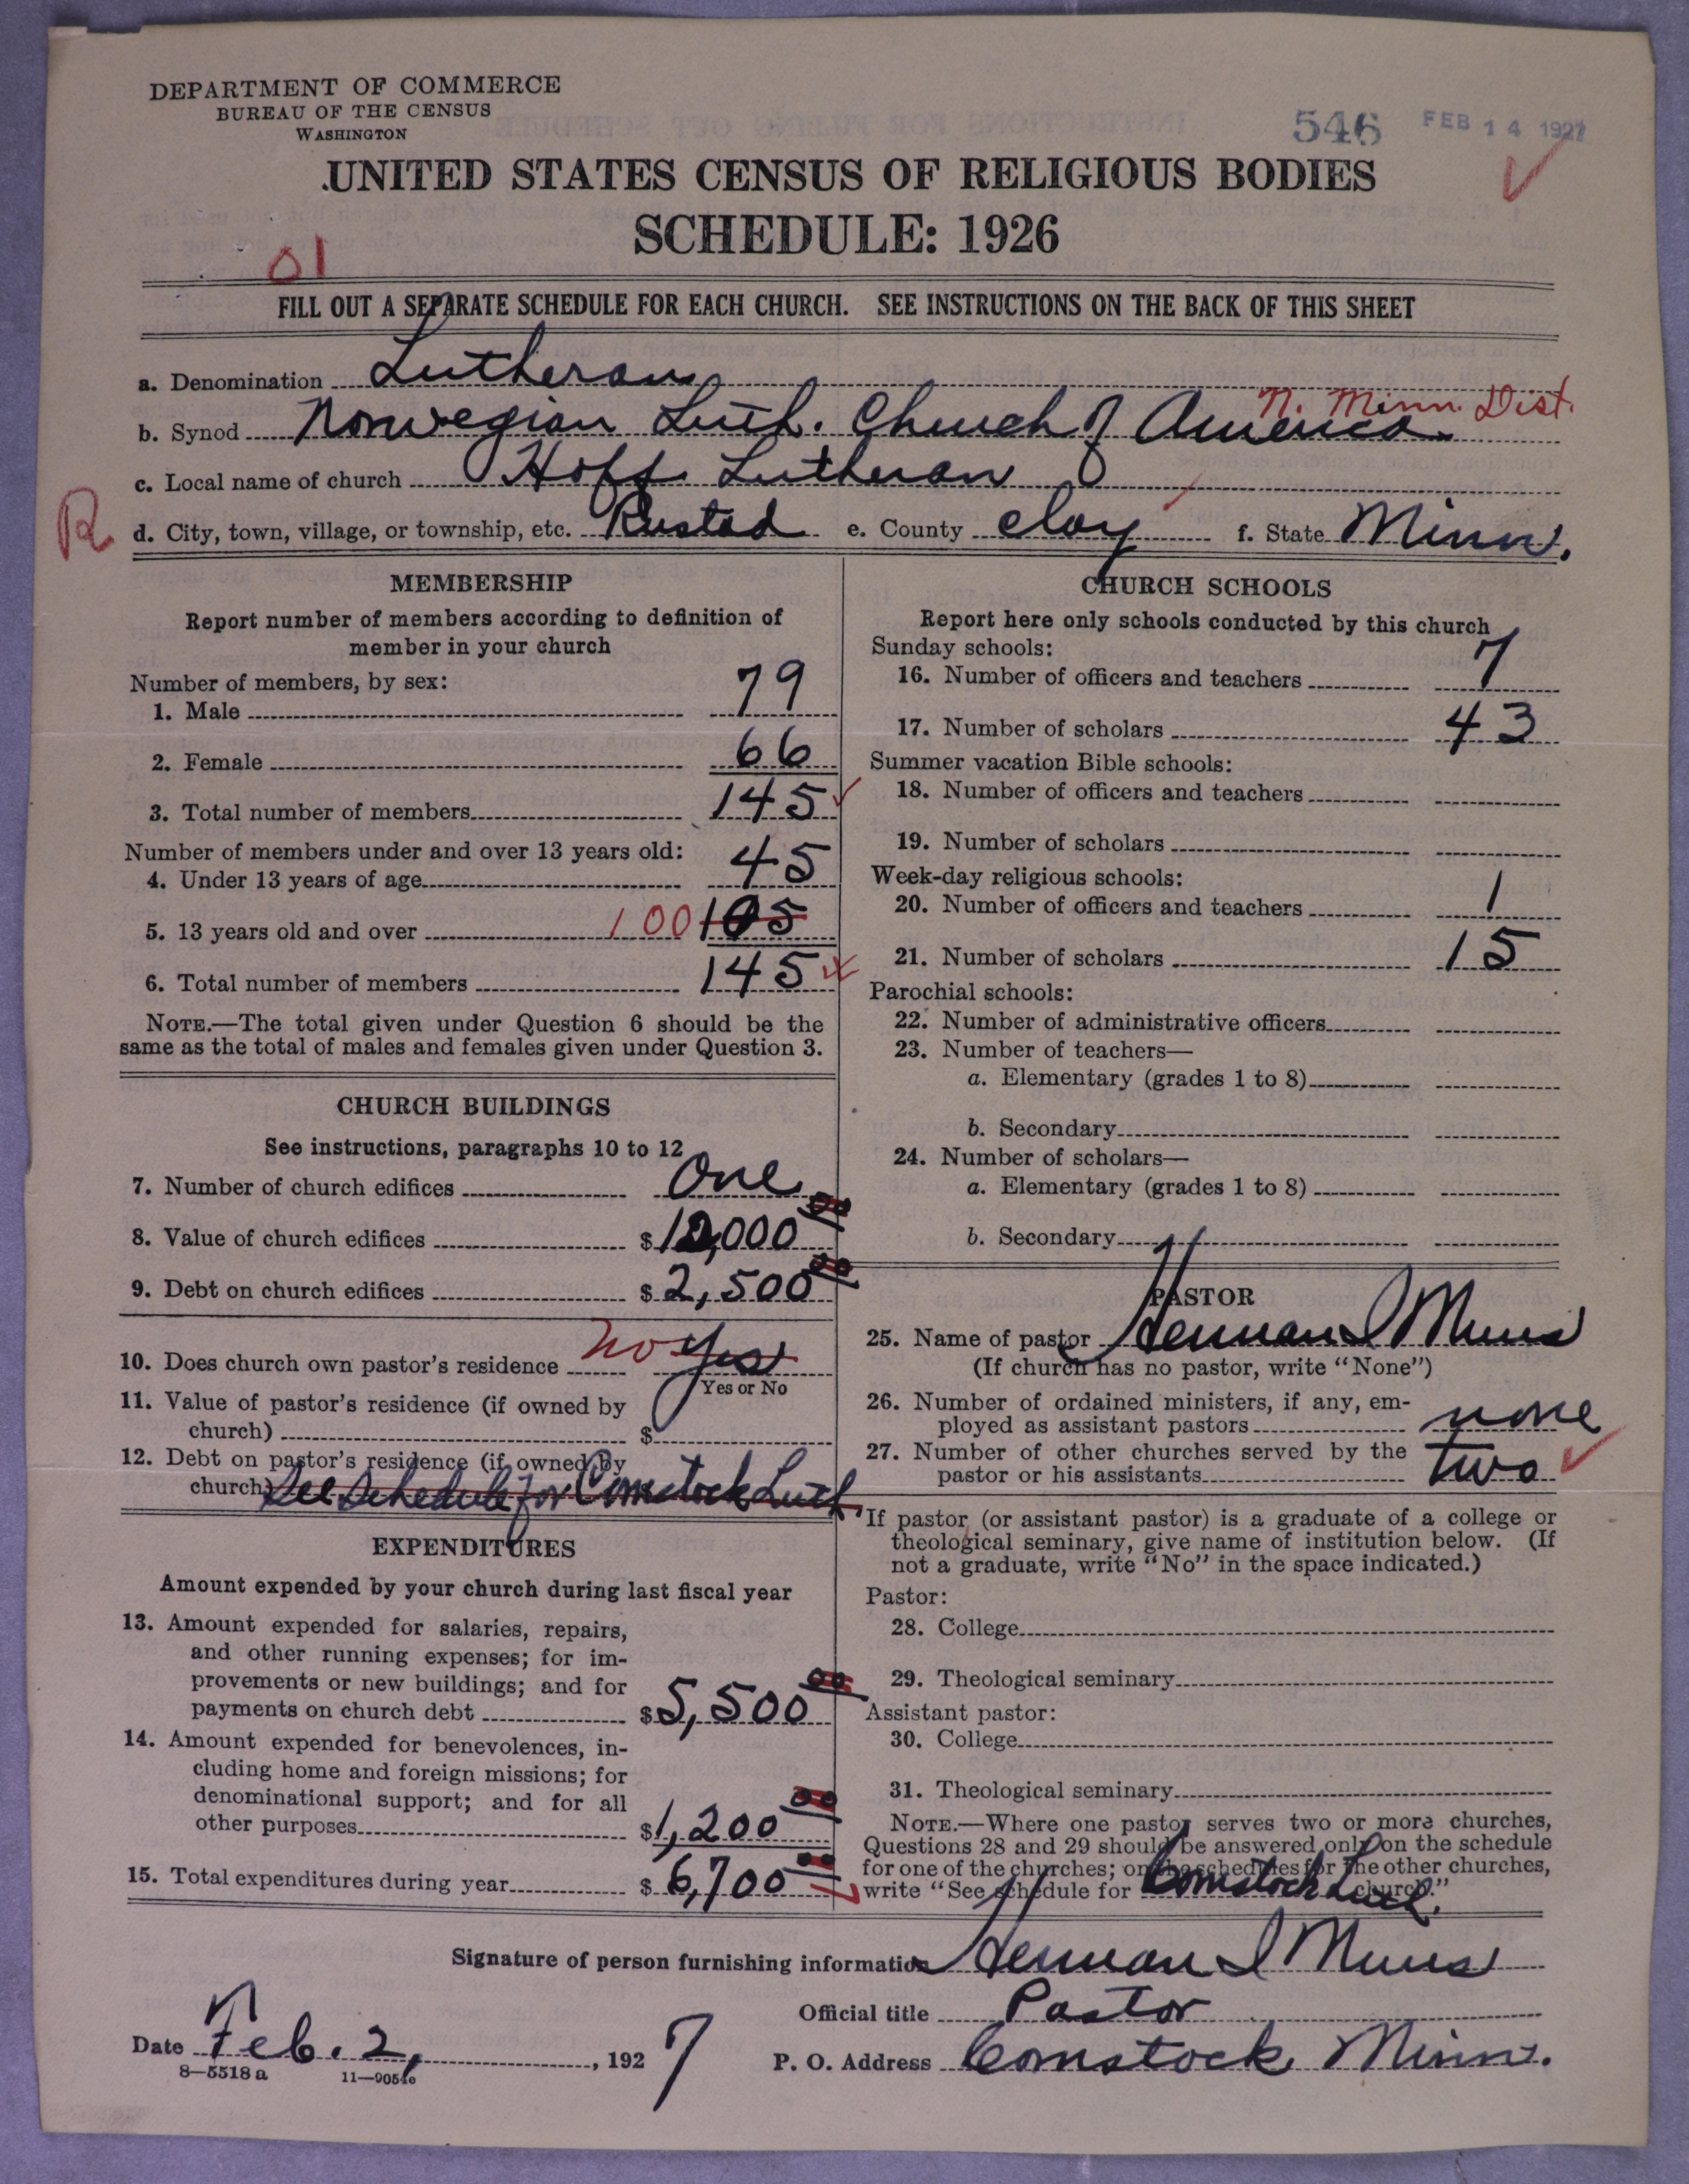 DEPARTMENT OF COMMERCE
BUREAU OF THE CENSUS
WASHINGTON
546 FEB 14 1927
UNITED STATES CENSUS OF RELIGIOUS BODIES
SCHEDULE: 1926
01
FILL OUT A SEPARATE SCHEDULE FOR EACH CHURCH. SEE INSTRUCTIONS ON THE BACK OF THIS SHEET
a. Denomination Lutheran
N. Minn. Dist.
b. Synod Norwegian Luth. Church of America
c. Local name of church Hoff Lutheran
R d. City, town, village, or township, etc. Rustad e. County Clay f. State Minn.
MEMBERSHIP
Report number of members according to definition of
member in your church
Number of members, by sex:
1. Male 79
2. Female 66
3. Total number of members 145
Number of members under and over 13 years old:
4. Under 13 years of age 45
5. 13 years old and over 100 105
6. Total number of members 145
NOTE.—The total given under Question 6 should be the
same as the total of males and females given under Question 3.
CHURCH BUILDINGS
See instructions, paragraphs 10 to 12
7. Number of church edifices One
8. Value of church edifices $12,000 00
9. Debt on church edifices $2,500 00
10. Does church own pastor's residence no Yes
Yes or No
11. Value of pastor's residence (if owned by
church) $
12. Debt on pastor's residence (if owned by
church) See Schedule for Comstock Luth.
EXPENDITURES
Amount expended by your church during last fiscal year
13. Amount expended for salaries, repairs,
and other running expenses; for im-
provements or new buildings; and for
payments on church debt $5,500 00
14. Amount expended for benevolences, in-
cluding home and foreign missions; for
denominational support; and for all
other purposes $1,200 00
15. Total expenditures during year $6,700 00
CHURCH SCHOOLS
Report here only schools conducted by this church
Sunday schools:
16. Number of officers and teachers 7
17. Number of scholars 43
Summer vacation Bible schools:
18. Number of officers and teachers
19. Number of scholars
Week-day religious schools:
20. Number of officers and teachers 1
21. Number of scholars 15
Parochial schools:
22. Number of administrative officers
23. Number of teachers—
a. Elementary (grades 1 to 8)
b. Secondary
24. Number of scholars—
a. Elementary (grades 1 to 8)
b. Secondary
PASTOR
25. Name of pastor Herman I Muus
(If church has no pastor, write "None")
26. Number of ordained ministers, if any, em-
ployed as assistant pastors none
27. Number of other churches served by the
pastor or his assistants two
If pastor (or assistant pastor) is a graduate of a college or
theological seminary, give name of institution below. (If
not a graduate, write "No" in the space indicated.)
Pastor:
28. College
29. Theological seminary
Assistant pastor:
30. College
31. Theological seminary
NOTE.—Where one pastor serves two or more churches,
Questions 28 and 29 should be answered only on the schedule
for one of the churches; on the schedules for the other churches,
write "See schedule for Comstock Luth. church."
Signature of person furnishing information Herman I Muus
Official title Pastor
Date Feb. 2, 1927
P. O. Address Comstock, Minn.
8—5518 a 11—9054c